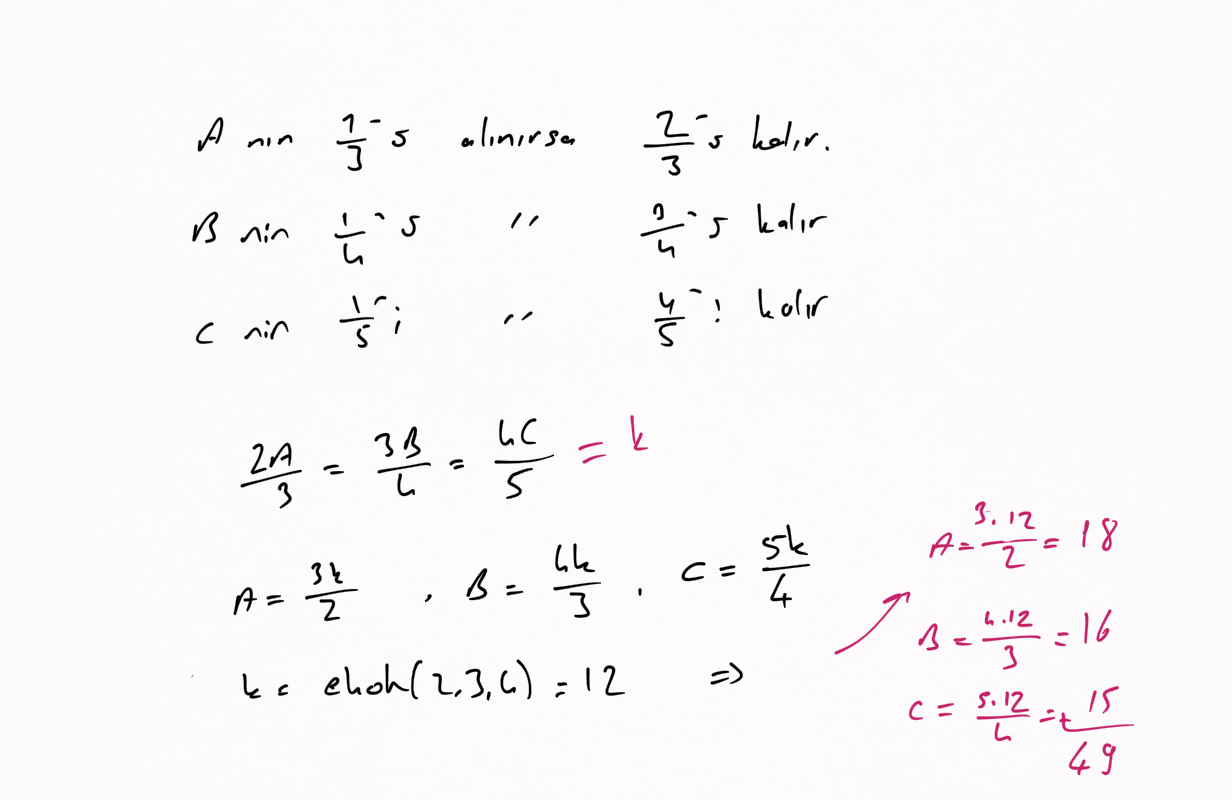 A nın 1/3 ü alınırsa 2/3 ü kalır.
B nin 1/4 ü " 3/4 ü kalır
C nin 1/5 i " 4/5 i kalır
2A/3 = 3B/4 = 4C/5 = k
A = 3k/2 , B = 4k/3 , C = 5k/4
k = ekok(2,3,4) = 12 ⇒
A = 3.12/2 = 18
B = 4.12/3 = 16
C = 5.12/4 = + 15
49